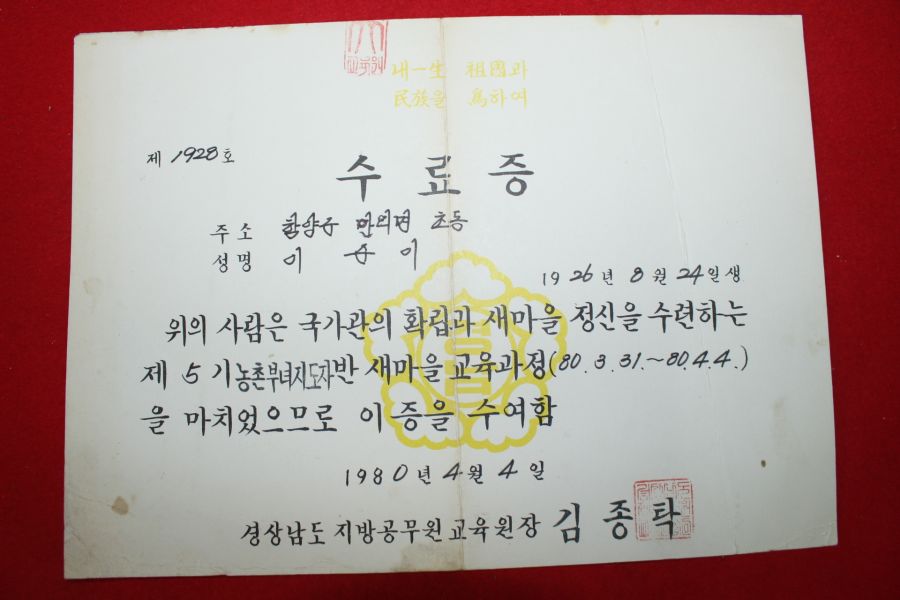 내一生 祖國과
民族을 爲하여
제 1928 호
수료증
주소 함양군 안의면 초동
성명 이 순 이
1926년 8월 24일생
위의 사람은 국가관의 확립과 새마을 정신을 수련하는
제 5 기 농촌부녀지도자반 새마을교육과정(80.3.31.~80.4.4.)
을 마치었으므로 이 증을 수여함
1980년 4월 4일
경상남도 지방공무원교육원장 김종탁